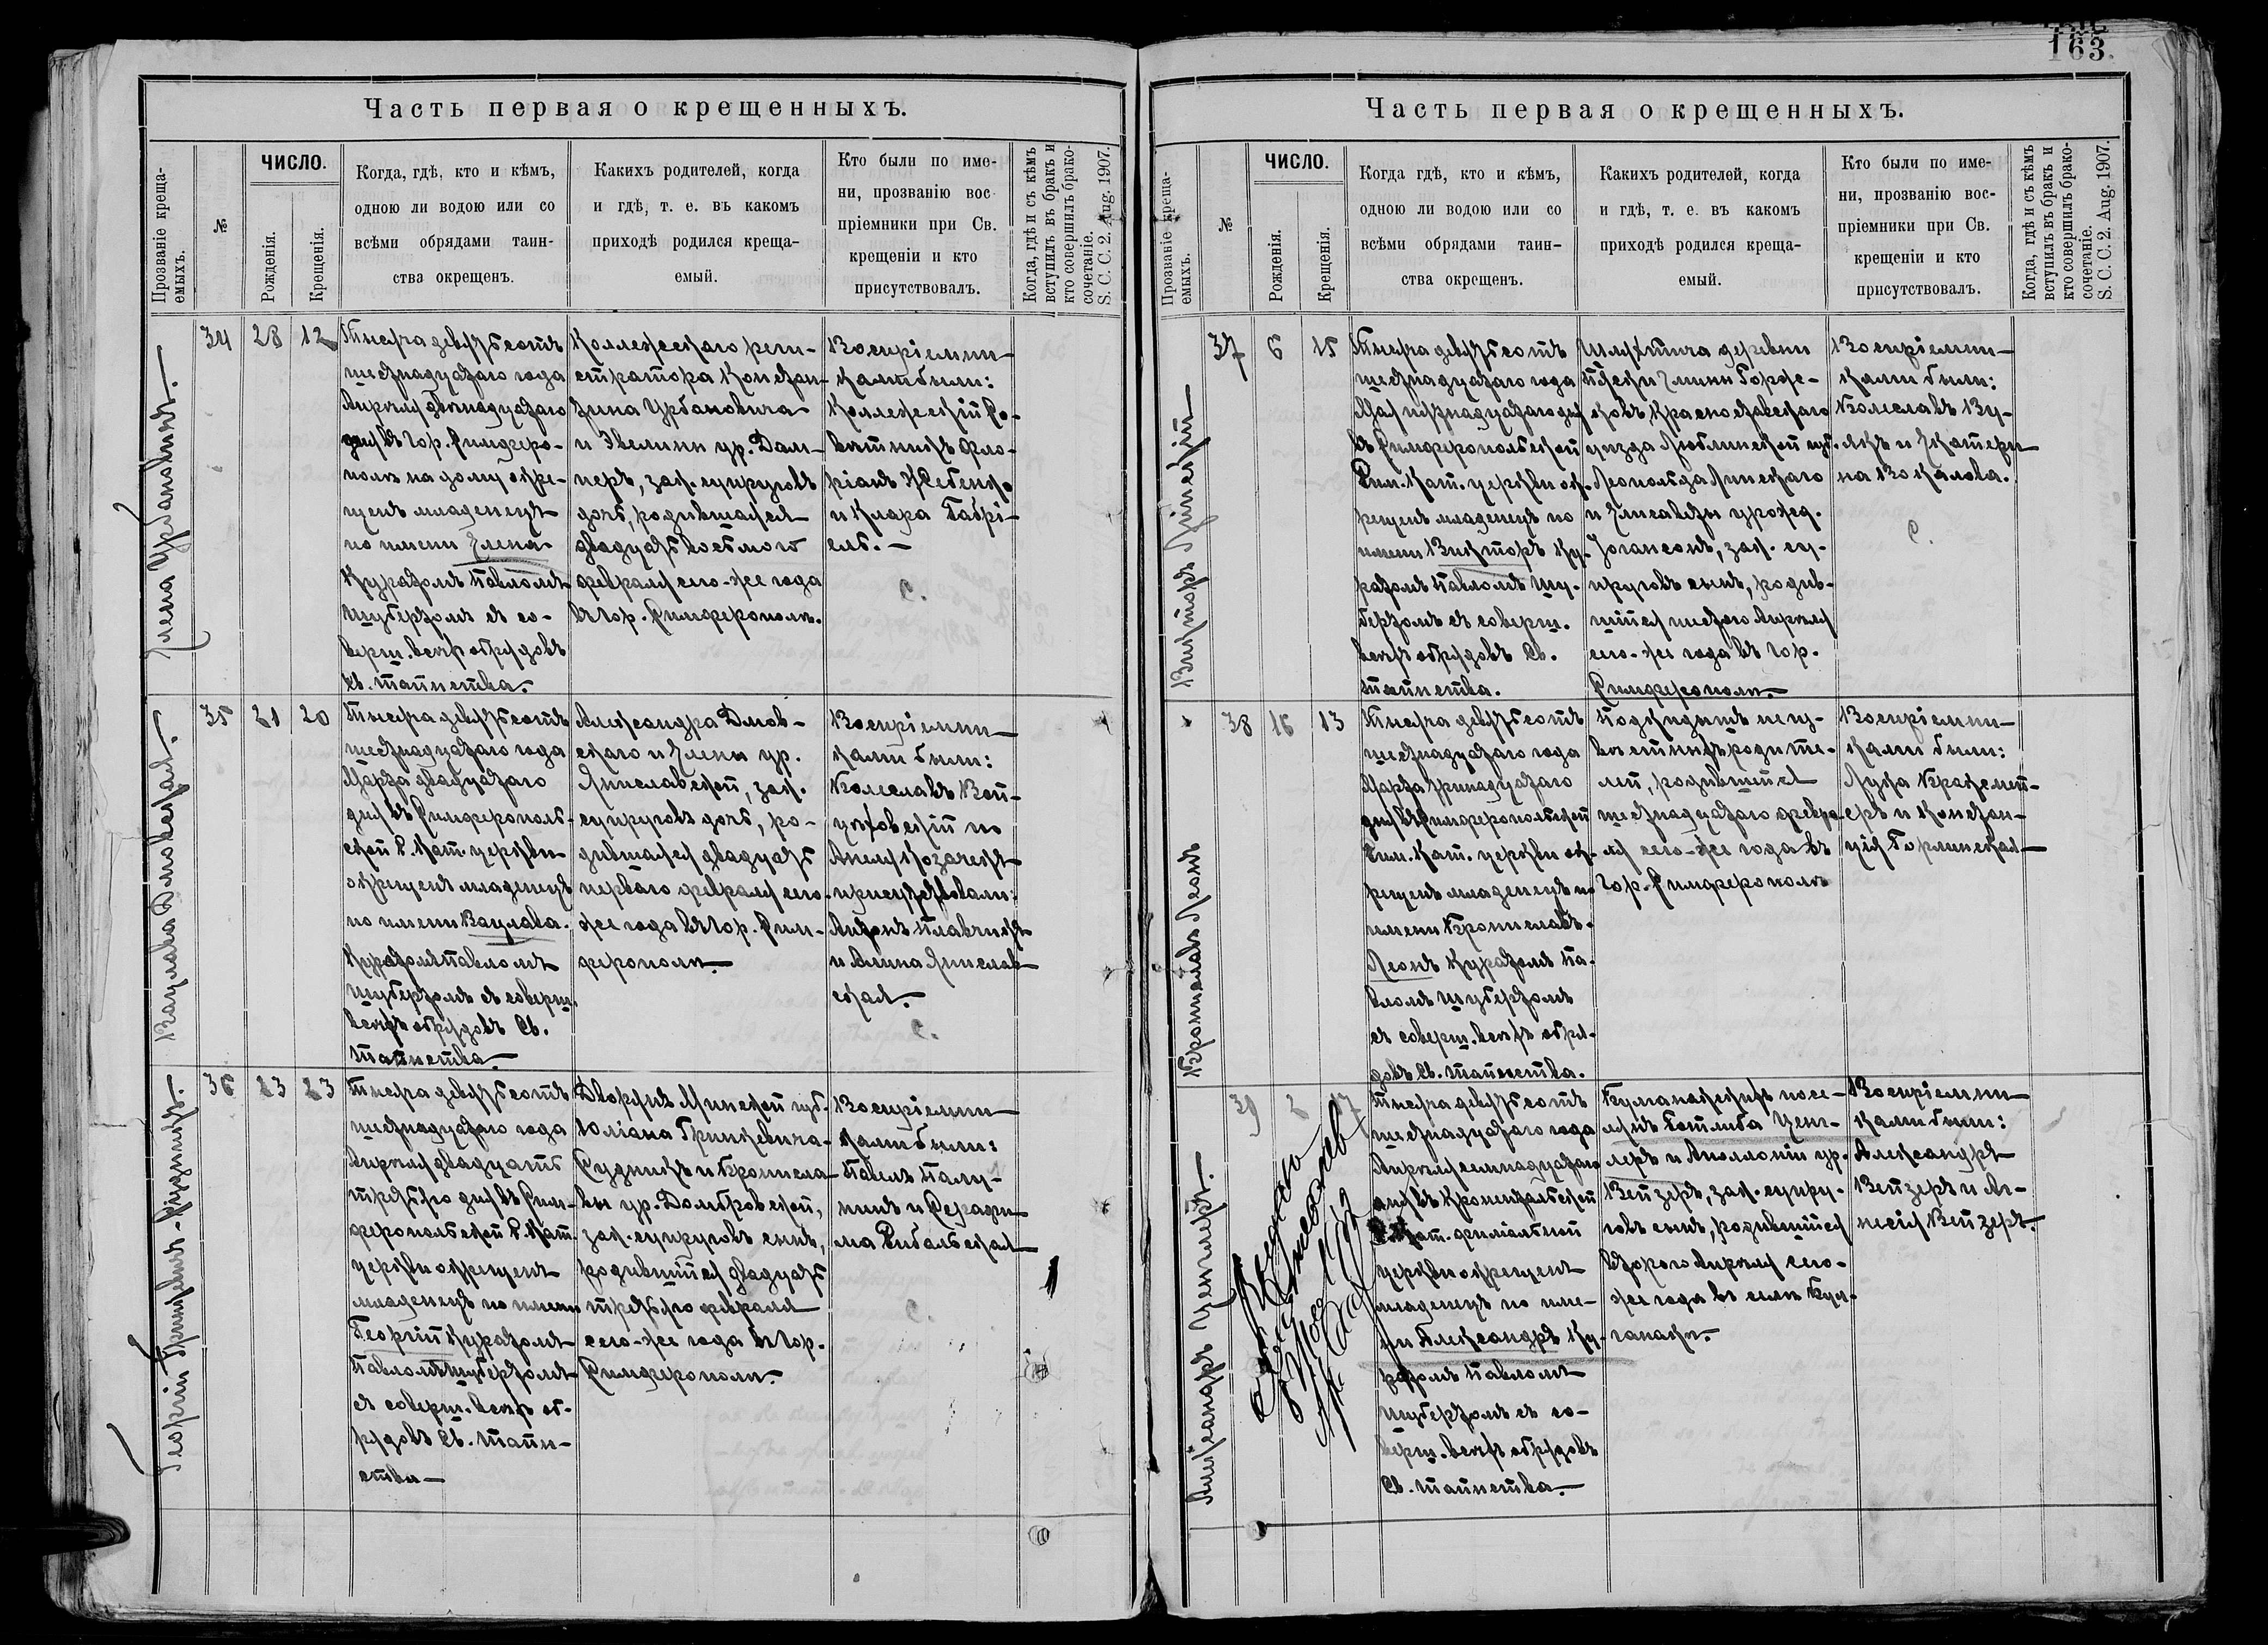 163.
Часть первая о крещенныхъ.
Прозваніе креща-
емыхъ.
№
ЧИСЛО.
Рожденія.
Крещенія.
Когда, гдѣ, кто и кѣмъ,
одною ли водою или со
всѣми обрядами таин-
ства окрещенъ.
Какихъ родителей, когда
и гдѣ, т. е. въ какомъ
приходѣ родился креща-
емый.
Кто были по име-
ни, прозванію вос
пріемники при Св.
крещеніи и кто
присутствовалъ.
Когда, гдѣ и съ кѣмъ
вступилъ въ бракъ и
кто совершилъ брако-
сочетаніе.
S. C. C. 2. Aug. 1907.
Елена Урбановичъ.
34
28
12
Тысяча девятьсотъ
шестнадцатаго года
Апрѣля двѣнадцатаго
дня въ гор. Симферо-
полѣ на дому окре-
щенъ младенецъ
по имени Елена
Куратомъ Павломъ
Шубертомъ съ со-
верш. всѣхъ обрядовъ
Св. таинства.
Коллежскаго реги-
стратора Констан-
тина Урбановича
и Эвелины ур. Дом-
неръ, зак. супруговъ
дочь, родившаяся
двадцать восьмого
февраля сего-же года
въ гор. Симферополѣ.
Воспріемни-
ками были:
Коллежскій Со-
вѣтникъ Фло-
ріанъ
и Клара Габрі-
ель.
С.
Вацлава Дмовская.
35
21
20
Тысяча девятьсотъ
шестнадцатаго года
Марта двадцатаго
дня въ Симферополь-
ской Р. Кат. церкви
окрещенъ младенецъ
по имени Вацлава.
Куратомъ Павломъ
Шубертомъ съ соверш.
всѣхъ обрядовъ Св.
Таинства.
Александра Дмов-
скаго и Елены ур.
Яниславской, зак.
супруговъ дочь, ро-
дившаяся двадцать
перваго февраля сего-
же года въ гор. Сим-
ферополѣ.
Воспріемни-
ками были:
Болеславъ Вой-
цѣховскій по
Анеля Козачекъ
присутствовали:
Антонъ Плавчикъ
и Алина Янислав-
ская.
С.
Георгій Гринкевичъ-Судникъ.
36
23
23
Тысяча девятьсотъ
шестнадцатаго года
Апрѣля двадцать
третьяго дня въ Сим-
феропольской Р. Кат.
церкви окрещенъ
младенецъ по имени
Георгій Куратомъ
Павломъ Шубертомъ
съ соверш. всѣхъ об-
рядовъ Св. Таин-
ства
Дворянъ Минской губ.
Юліана Гринкевича-
Судникъ и Бронисла-
вы ур. Домбровской,
зак. супруговъ сынъ,
родившійся двадцать
третьяго февраля
сего-же года въ гор.
Симферополѣ.
Воспріемни-
ками были:
Павелъ Палу-
нинъ и Серафи-
ма Рибальская
С.
Часть первая о крещенныхъ.
Прозваніе креща-
емыхъ.
№
ЧИСЛО.
Рожденія.
Крещенія.
Когда гдѣ, кто и кѣмъ,
одною ли водою или со
всѣми обрядами таин-
ства окрещенъ.
Какихъ родителей, когда
и гдѣ, т. е. въ какомъ
приходѣ родился креща-
емый.
Кто были по име-
ни, прозванію вос-
пріемники при Св.
крещеніи и кто
присутствовалъ.
Когда, гдѣ и съ кѣмъ
вступилъ въ бракъ и
кто совершилъ брако-
сочетаніе.
S. C. C. 2. Aug. 1907.
Викторъ Линскій
37
6
15
Тысяча девятьсотъ
шестнадцатаго года
Мая пятнадцатаго дня
въ Симферопольской
Рим. Кат. церкви ок-
рещенъ младенецъ по
имени Викторъ Ку-
ратомъ Павломъ Шу-
бертомъ съ соверш.
всѣхъ обрядовъ Св.
Таинства.
Шляхтича деревни
Горже-
ковъ, Красноставскаго
уѣзда Люблинской губ.
Леопольда Линскаго
и Елисаветы урожд.
Іогансонъ, зак. су-
пруговъ сынъ, родив-
шійся шестого Апрѣля
сего-же года въ гор.
Симферополѣ.
Воспріемни-
ками были:
Болеславъ Ву-
якъ и Екатери-
на Вокалова.
С.
Брониславъ Леонъ
38
16
13
Тысяча девятьсотъ
шестнадцатаго года
Марта тринадцатаго
дня въ Симферопольской
Рим. Кат. церкви ок-
рещенъ младенецъ по
имени Брониславъ-
Леонъ Куратомъ Па-
вломъ Шубертомъ
съ соверш. всѣхъ обря-
довъ Св. таинства.
Подкидышъ неиз-
вѣстныхъ родите-
лей, родившійся
шестнадцатаго февра-
ля сего-же года въ
гор. Симферополѣ
Воспріемни-
ками были:
Лука Кракемей-
еръ и Констан-
ція Горлинская
Александръ Ценглеръ.
39
2
17
Тысяча девятьсотъ
шестнадцатаго года
Апрѣля семнадцатаго
дня въ Кронентальской
Р. Кат. филіальной
церкви окрещенъ
младенецъ по име-
ни Александръ Ку-
ратомъ Павломъ
Шубертомъ съ со-
верш. всѣхъ обрядовъ
Св. таинства.
Булганакскихъ посе-
лянъ Готлиба Ценг-
леръ и Аполлоніи ур.
Вейзеръ, зак. супру-
говъ сынъ, родившійся
второго Апрѣля сего-
же года въ селѣ Бул-
ганакъ.
Воспріемни-
ками были:
Александръ
Вейзеръ и Аг-
несія Вейзеръ.